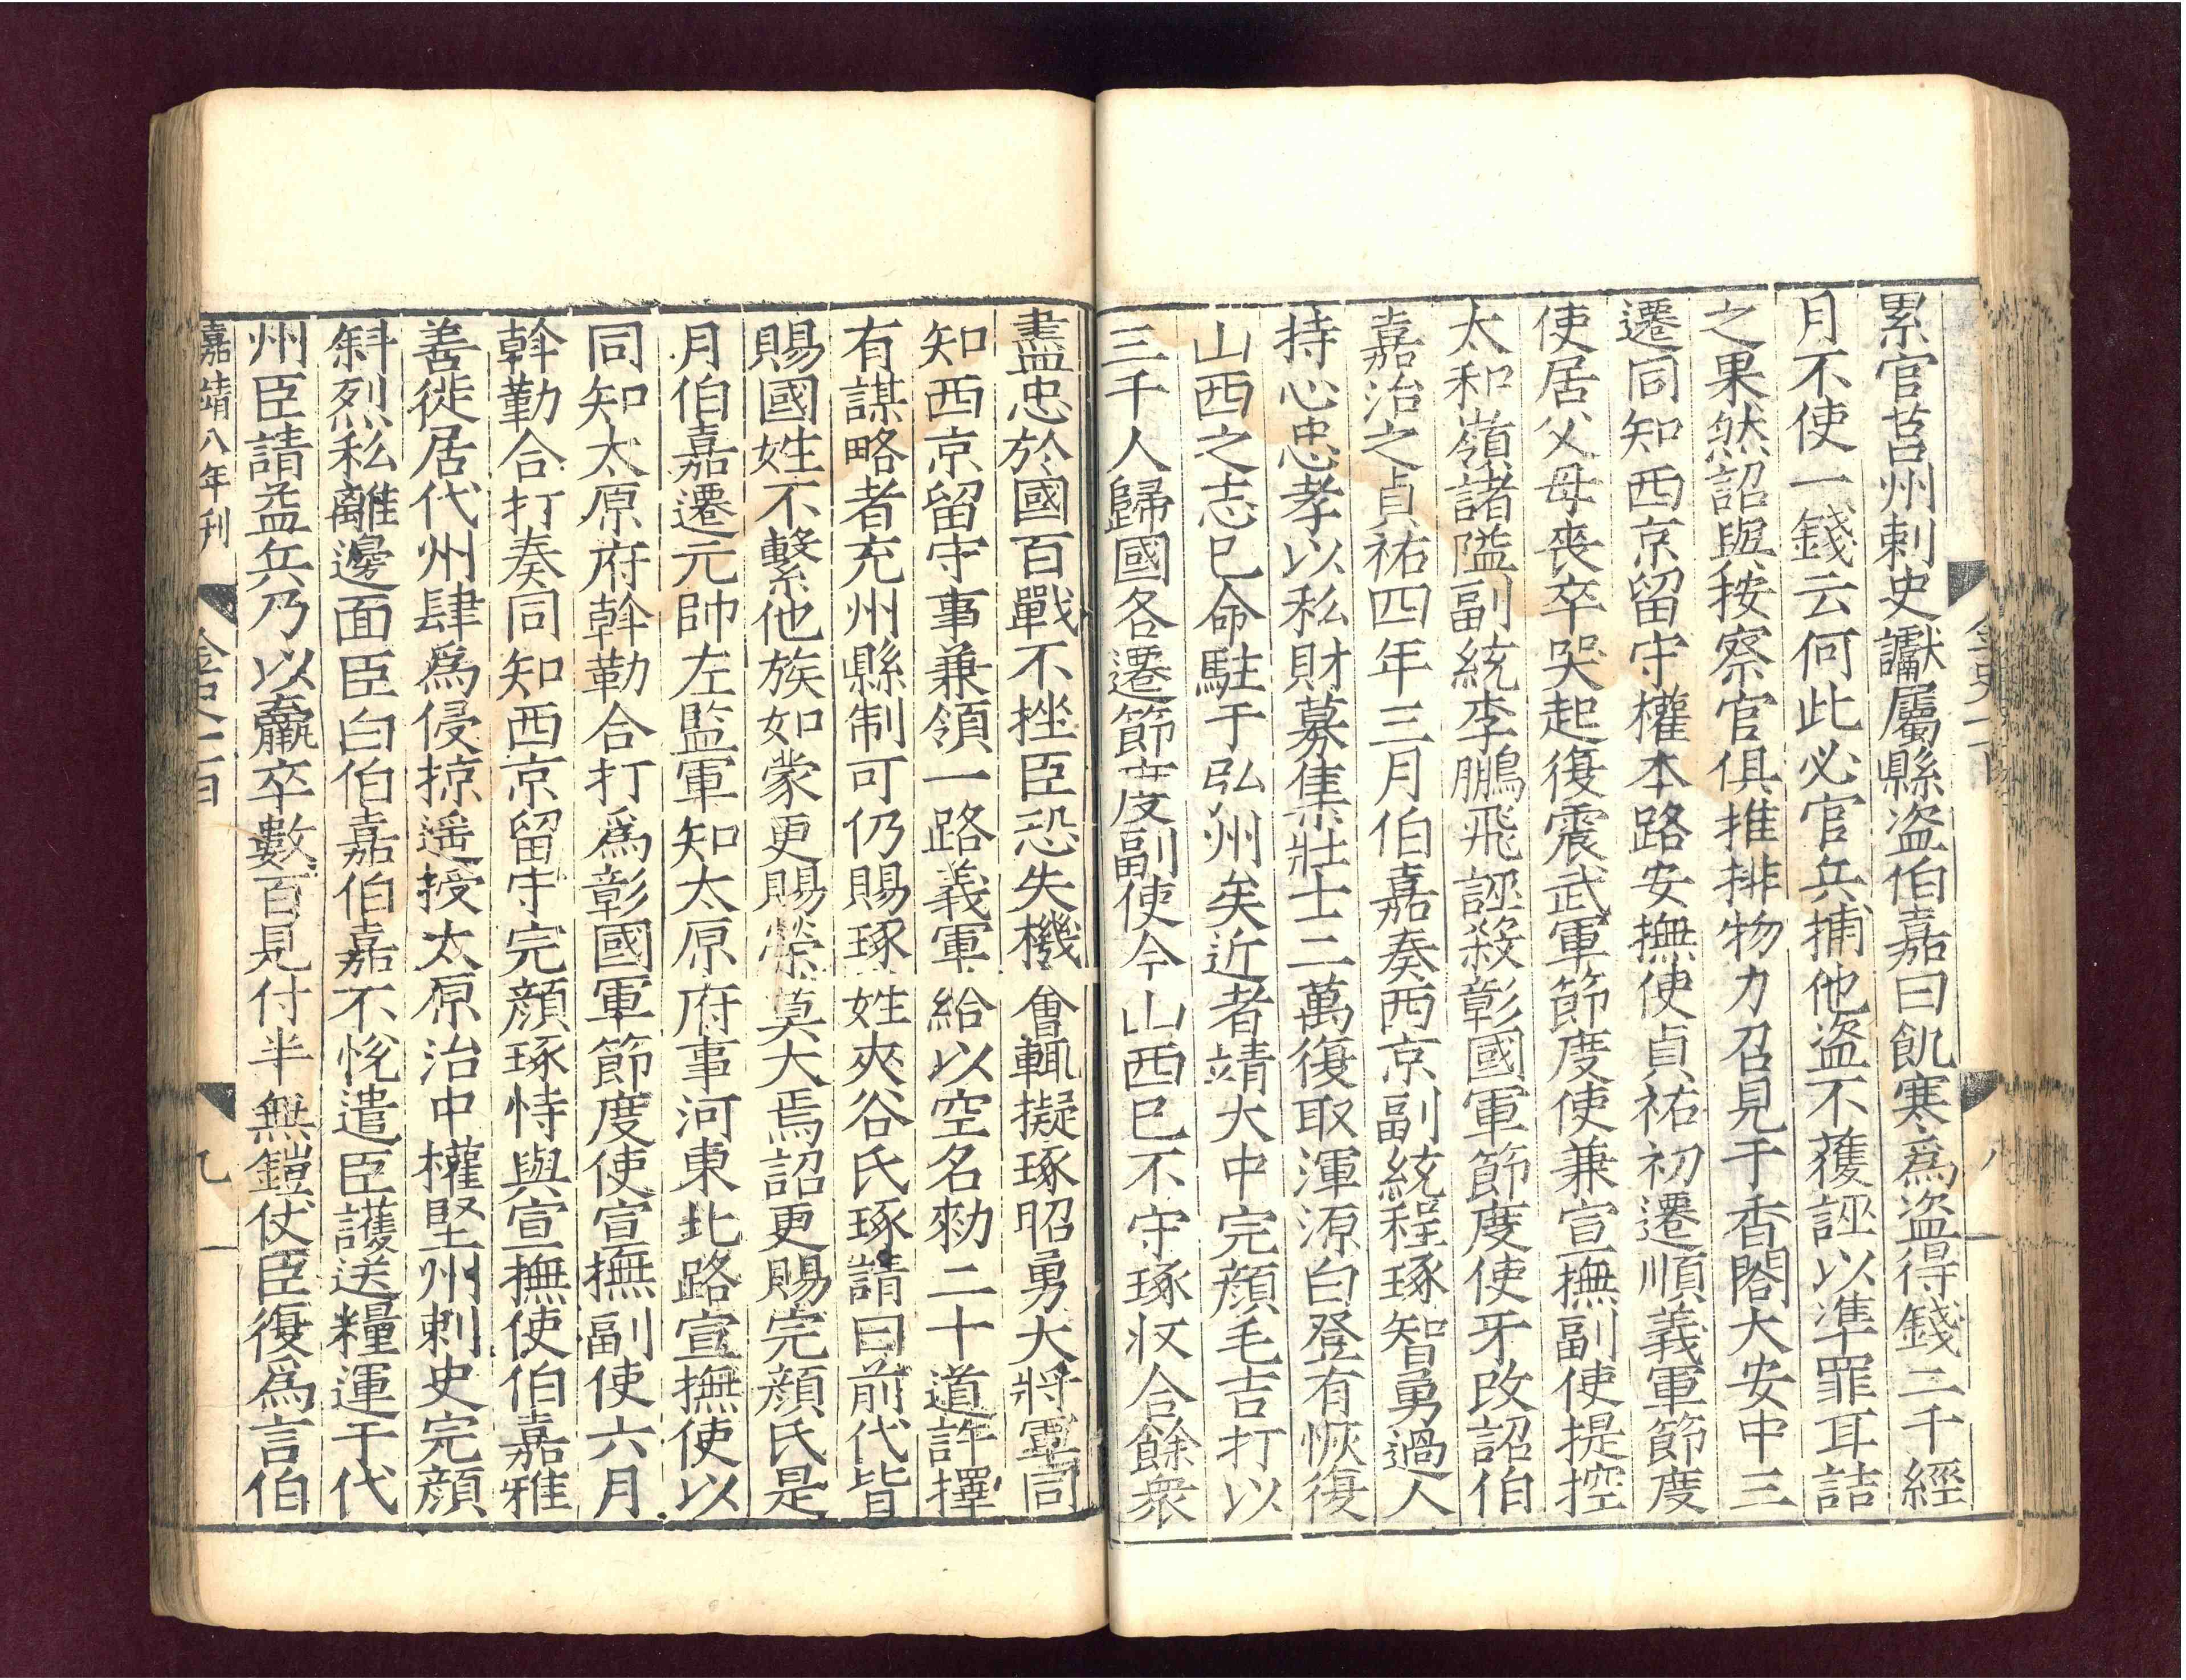 累官莒州刺史讞屬縣盜伯嘉曰飢寒爲盜得錢二千經
月不使一錢云何此必官兵捕他盜不獲誣以準罪耳詰
之果然詔與按察官俱推排物力召見于香閣大安中三
遷同知西京留守權本路安撫使貞祐初遷順義軍節度
使居父母喪卒哭起復震武軍節度使兼宣撫副使提控
太和嶺諸隘副統李鵬飛誣殺彰國軍節度使牙改詔伯
嘉治之貞祐四年三月伯嘉奏西京副統程琢智勇過人
持心忠孝以私財募集壯士二萬復取渾源白登有恢復
山西之志已命駐于弘州矣近者靖大中完顔毛吉打以
三千人歸國各遷節度副使今山西已不守琢收合餘衆
盡忠於國百戰不挫臣恐失機會輒擬琢昭勇大將軍同
知西京留守事兼領一路義軍給以空名勑二十道許擇
有謀略者充州縣制可仍賜琢姓夾谷氏琢請曰前代皆
賜國姓不繫他族如蒙更賜榮莫大焉詔更賜完顔氏是
月伯嘉遷元帥左監軍知太原府事河東北路宣撫使以
同知太原府斡勒合打爲彰國軍節度使宣撫副使六月
斡勒合打奏同知西京留守完顔琢恃與宣撫使伯嘉雅
善徙居代州肆爲侵掠遥授太原治中權堅州刺史完顔
斜烈私離邊面臣白伯嘉伯嘉不悅遣臣護送糧運于代
州臣請益兵乃以羸卒數百見付半無鎧仗臣復爲言伯
嘉靖八年刊
九